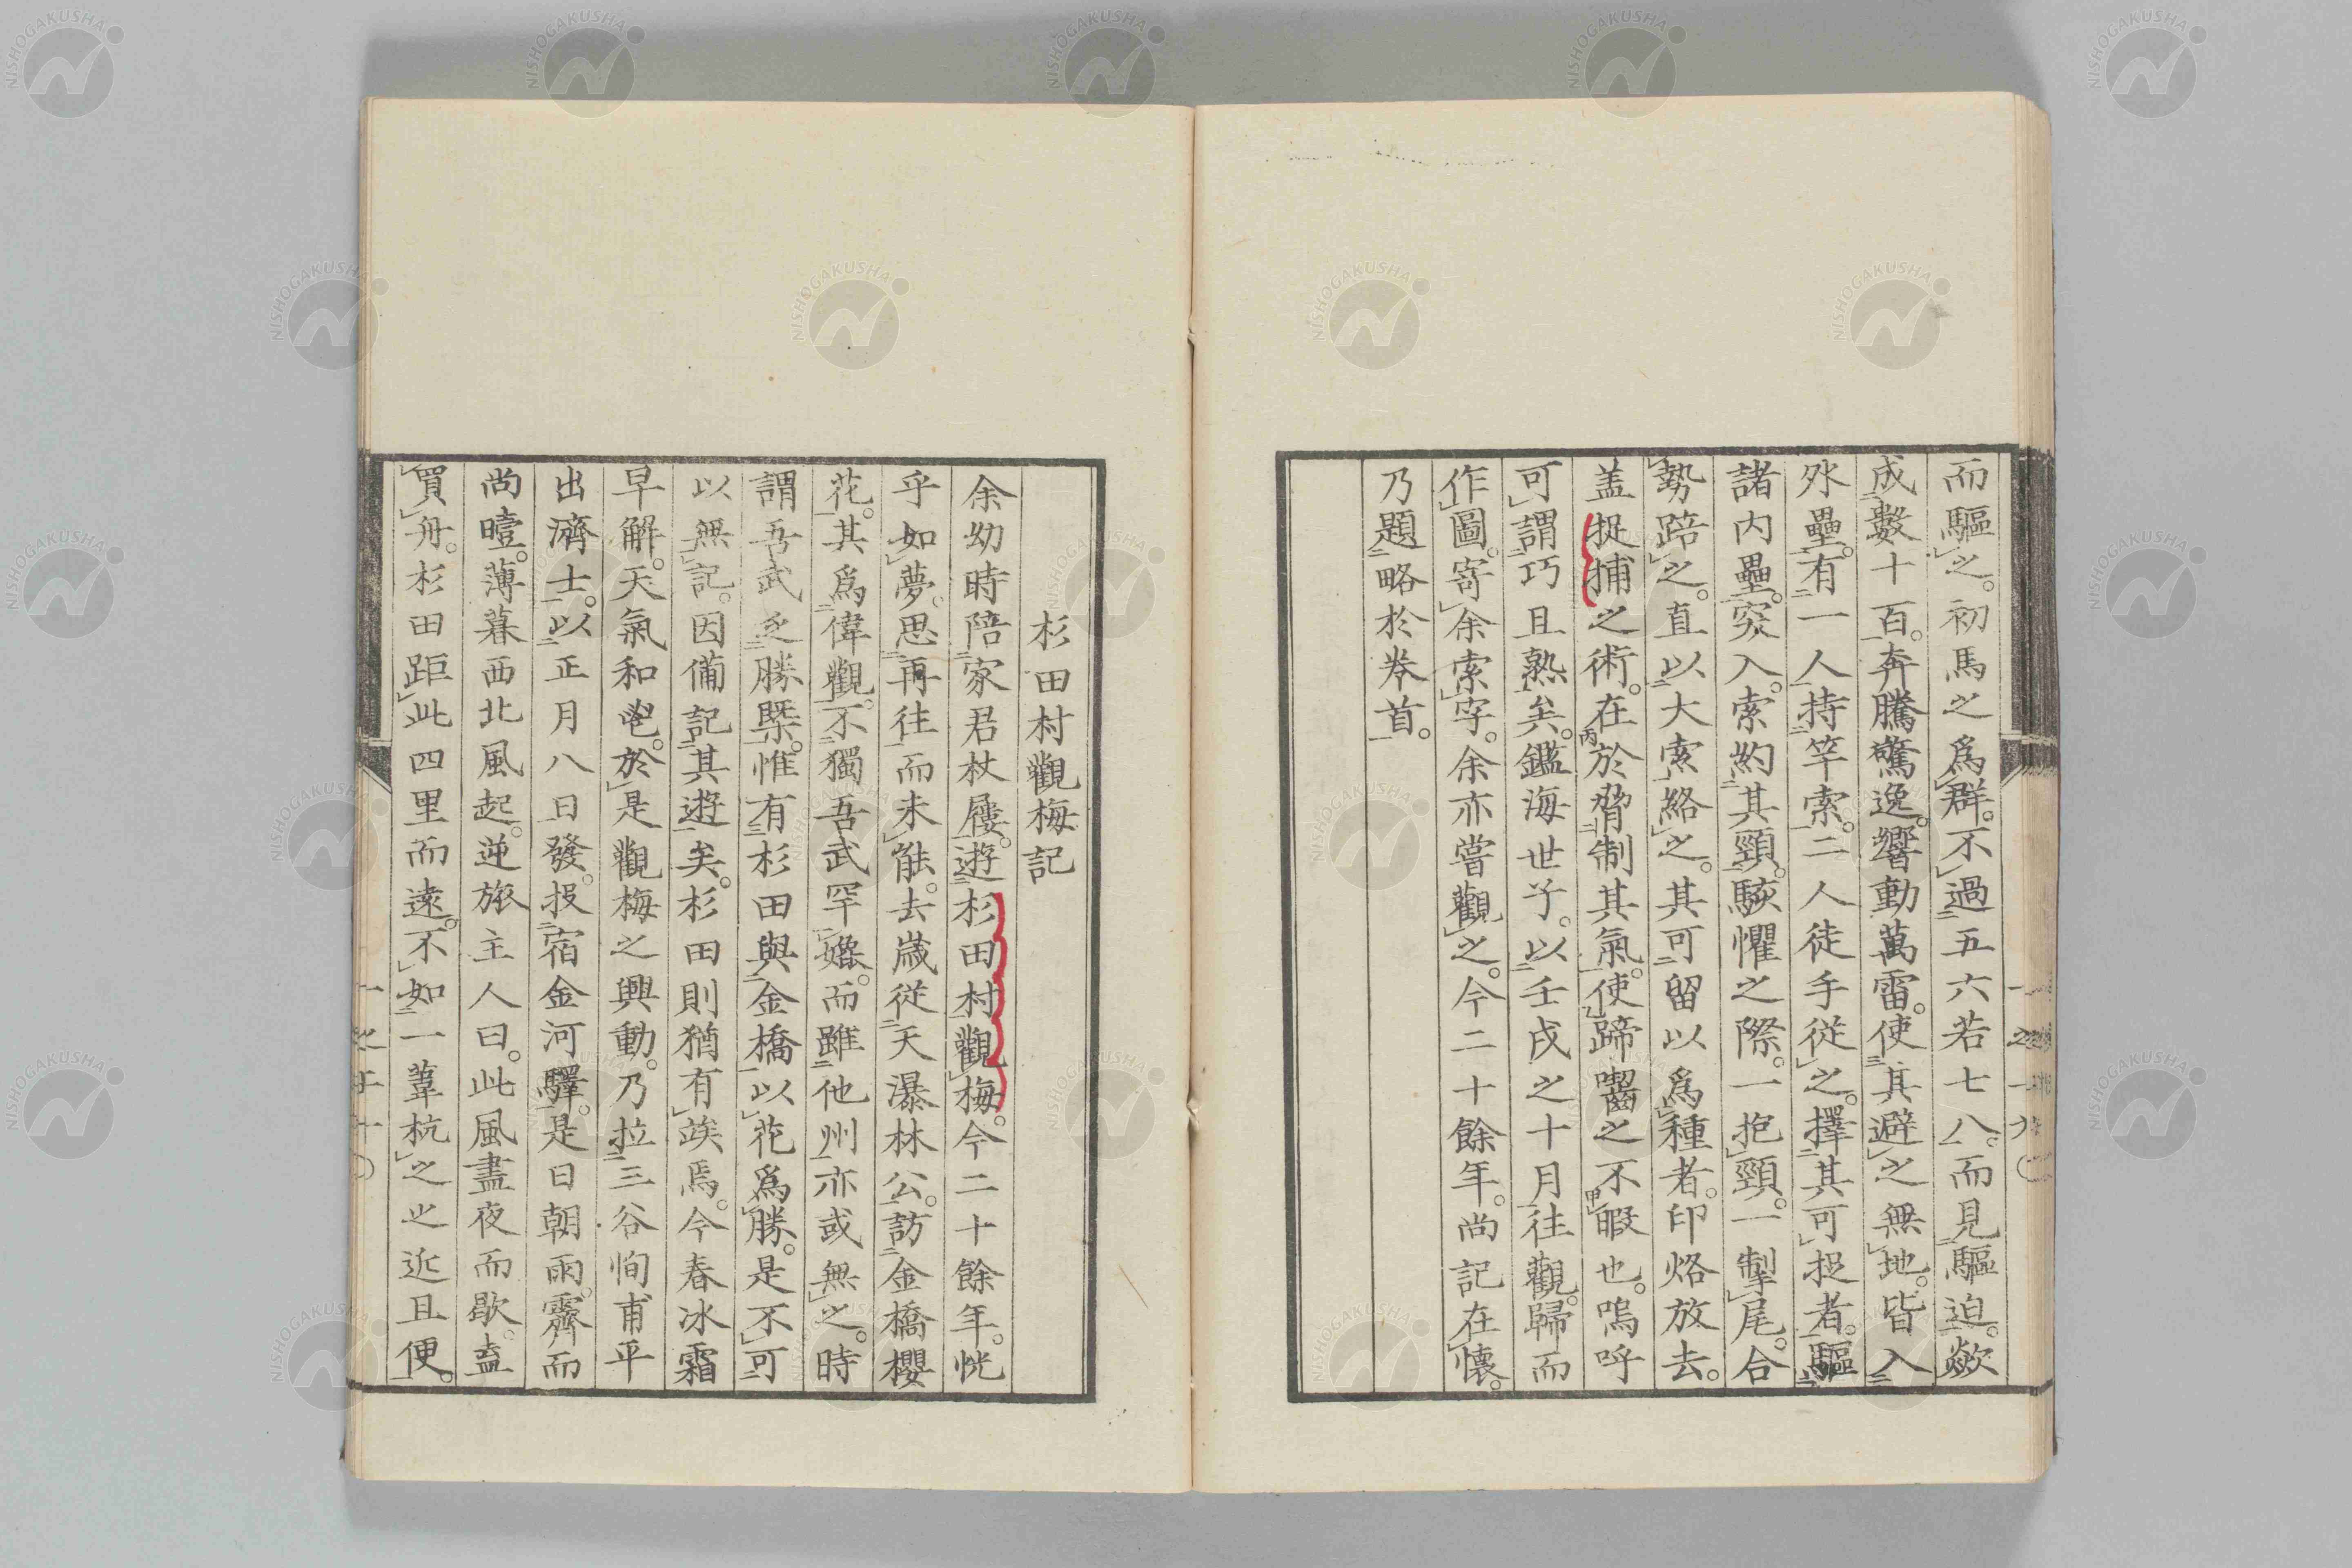 而驅之。初馬之爲群。不過五六若七八。而見驅迫。歘
成數十百。奔騰驚逸。響動萬雷。使其避之無地。皆入
外壘。有一人持竿索。二人徒手從之。擇其可捉者。驅
諸内壘。突入。索約其頸。駭懼之際。一抱頸。一掣尾。合
勢踣之。直以大索絡之。其可留以爲種者。印烙放去。
盖捉捕之術。在於脅制其氣。使蹄囓之不暇也。嗚呼
可謂巧且熟矣。鑑海世子。以壬戌之十月往觀。歸而
作圖。寄余索字。余亦嘗觀之。今二十餘年。尚記在懷。
乃題略於卷首。
杉田村觀梅記
余幼時陪家君杖屨。遊杉田村觀梅。今二十餘年。恍
乎如夢。思再往而未能。去歲從天瀑林公。訪金橋櫻
花。其爲偉觀。不獨吾武罕媲。而雖他州亦或無之。時
謂吾武乏勝槩。惟有杉田與金橋以花爲勝。是不可
以無記。因備記其遊矣。杉田則猶有竢焉。今春冰霜
早解。天氣和咆。於是觀梅之興動。乃拉三谷恂甫平
出濟士。以正月八日發。投宿金河驛。是日朝雨。霽而
尚曀。薄暮西北風起。逆旅主人曰。此風盡夜而歇。盍
買舟。杉田距此四里而遠。不如一葦杭之之近且便。
NISHOGAKUSHA